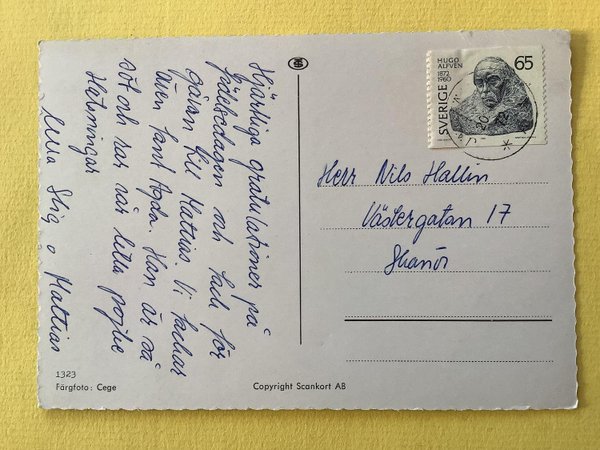 Hjärtliga gratulationer på
födelsedagen och tack för
gåvan till Mattias. Vi tackar
även tant Agda. Han är så
söt och rar vår lilla pojke
Hälsningar
Ulla Stig o Mattias
1323
Färgfoto: Cege
Copyright Scankort AB
SVERIGE
HUGO
ALFVÉN
1872
1960
65
Herr Nils Hallin
Västergatan 17
Skanör